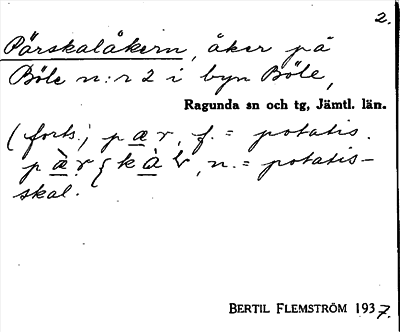 2.
Pärskalåkern, åker på
Böle n:r 2 i byn Böle,
Ragunda sn och tg, Jämtl. län.
(forts.) pær, f. = potatis.
n. = potatis-
skal.
BERTIL FLEMSTRÖM 1937.